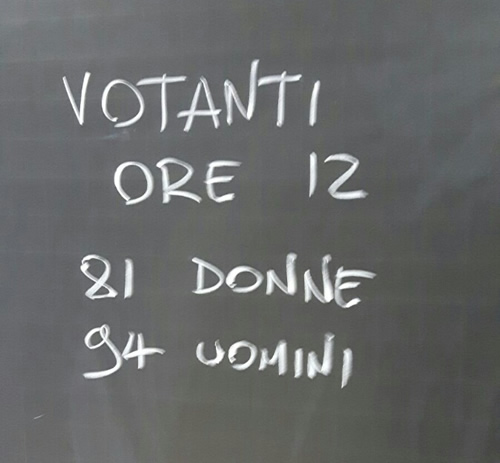 VOTANTI
ORE 12
81 DONNE
94 UOMINI